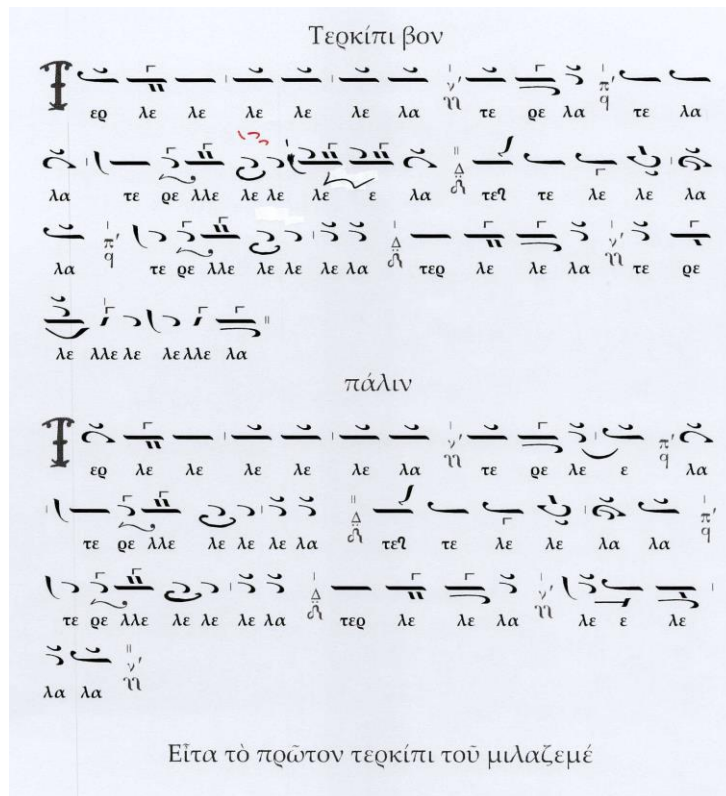 Τερκίπι βον
Τ ερ λε λε λε λε λε λα ν΄ τε ρε λα π΄ q τε λα
λα τε ρε λλε λε λε λε ε λα Δ τε τε λε λε λα
λα π΄ q τε ρε λλε λε λε λε λα Δ τερ λε λε λα ν΄ τε ρε
λε λλε λε λε λλε λα
πάλιν
Τ ερ λε λε λε λε λε λα ν΄ τε ρε λε ε π΄ q λα
τε ρε λλε λε λε λε λα Δ τε τε λε λε λα λα π΄ q
τε ρε λλε λε λε λε λα Δ τερ λε λε λα ν΄ λε ε λε
λα λα ν΄
Εἶτα τὸ πρῶτον τερκίπι τοῦ μιλαζεμέ